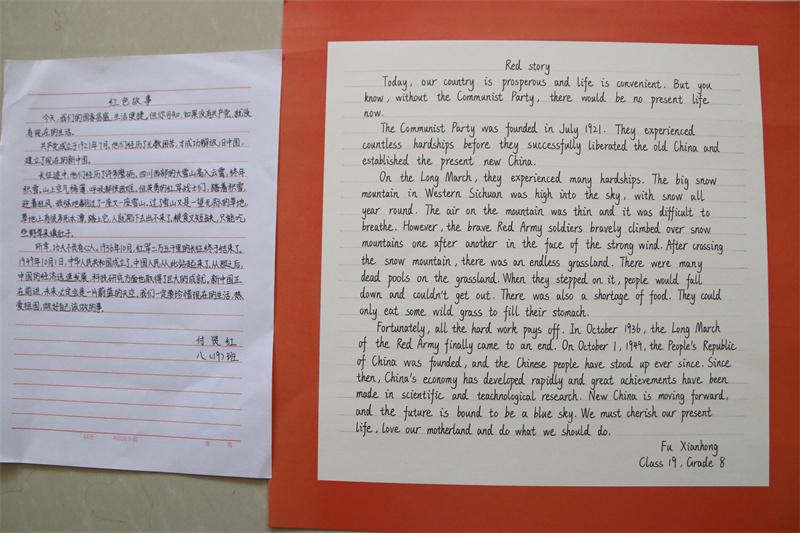 红色故事
今天,我们的国家昌盛,生活便捷,但你可知,如果没有共产党,就没
有现在的生活。
共产党成立于1921年7月,他们经历了无数困苦,才成功解放旧中国,
建立了现在的新中国。
长征途中,他们经历了许多磨砺。四川西部的大雪山高入云霄,终年
积雪,山上空气稀薄,呼吸都很困难,但英勇的红军战士们,踏着积雪,
迎着狂风,顽强地翻过了一座又一座雪山。过了雪山又是一望无际的草地,
草地上有很多死水潭,踏上它,人就陷下去出不来了,粮食又短缺,只能吃
些野草来填肚子。
所幸,功夫不负有心人。1936年10月,红军二万五千里的长征终于结束了。
1949年10月1日,中华人民共和国成立了,中国人民从此站起来了。从那之后,
中国的经济迅速发展,科技研究方面也取得了巨大的成就。新中国正
在前进,未来必定会是一片蔚蓝的天空,我们一定要珍惜现在的生活,热
爱祖国,做好自己该做的事。
付贤红
八(19)班
Red story
Today, our country is prosperous and life is convenient. But you
know, without the Communist Party, there would be no present life
now.
The Communist Party was founded in July 1921. They experienced
countless hardships before they successfully liberated the old China and
established the present new China.
On the Long March, they experienced many hardships. The big snow
mountain in Western Sichuan was high into the sky, with snow all
year round. The air on the mountain was thin and it was difficult to
breathe. However, the brave Red Army soldiers bravely climbed over snow
mountains one after another in the face of the strong wind. After crossing
the snow mountain, there was an endless grassland. There were many
dead pools on the grassland. When they stepped on it, people would fall
down and couldn't get out. There was also a shortage of food. They could
only eat some wild grass to fill their stomach.
Fortunately, all the hard work pays off. In October 1936, the Long March
of the Red Army finally came to an end. On October 1, 1949, the People's Republic
of China was founded, and the Chinese people have stood up ever since. Since
then, China's economy has developed rapidly and great achievements have been
made in scientific and teachnological research. New China is moving forward,
and the future is bound to be a blue sky. We must cherish our present
life, love our motherland and do what we should do.
Fu Xianhong
Class 19, Grade 8